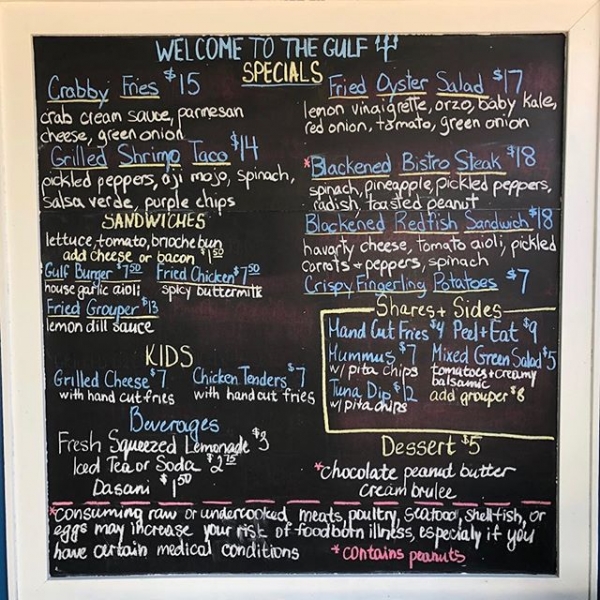 WELCOME TO THE GULF
SPECIALS
Crabby Fries $15
crab cream sauce, parmesan
cheese, green onion
Grilled Shrimp Taco $14
pickled peppers, aji mojo, spinach,
salsa verde, purple chips
SANDWICHES
lettuce, tomato, brioche bun
add cheese or bacon $1.50
*Gulf Burger $7.50 Fried Chicken $7.50
house garlic aioli spicy buttermilk
Fried Grouper $13
lemon dill sauce
KIDS
Grilled Cheese $7 Chicken Tenders $7
with hand cut fries with hand cut fries
Beverages
Fresh Squeezed Lemonade $3
Iced Tea or Soda $2.75
Dasani $1.50
Fried Oyster Salad $17
lemon vinaigrette, orzo, baby kale,
red onion, tomato, green onion
*Blackened Bistro Steak $18
spinach, pineapple, pickled peppers,
radish, toasted peanut
Blackened Redfish Sandwich $18
havarty cheese, tomato aioli, pickled
carrots + peppers, spinach
Crispy Fingerling Potatoes $7
Shares + Sides
Hand Cut Fries $4 Peel + Eat $9
Hummus $7 Mixed Green Salad $5
w/ pita chips tomatoes + creamy
balsamic
Tuna Dip $12 add grouper $8
w/ pita chips
Dessert $5
*chocolate peanut butter
creme brulee
*consuming raw or undercooked meats, poultry, seafood, shell-fish, or
eggs may increase your risk of foodborn illness, especialy if you
have certain medical conditions *contains peanuts